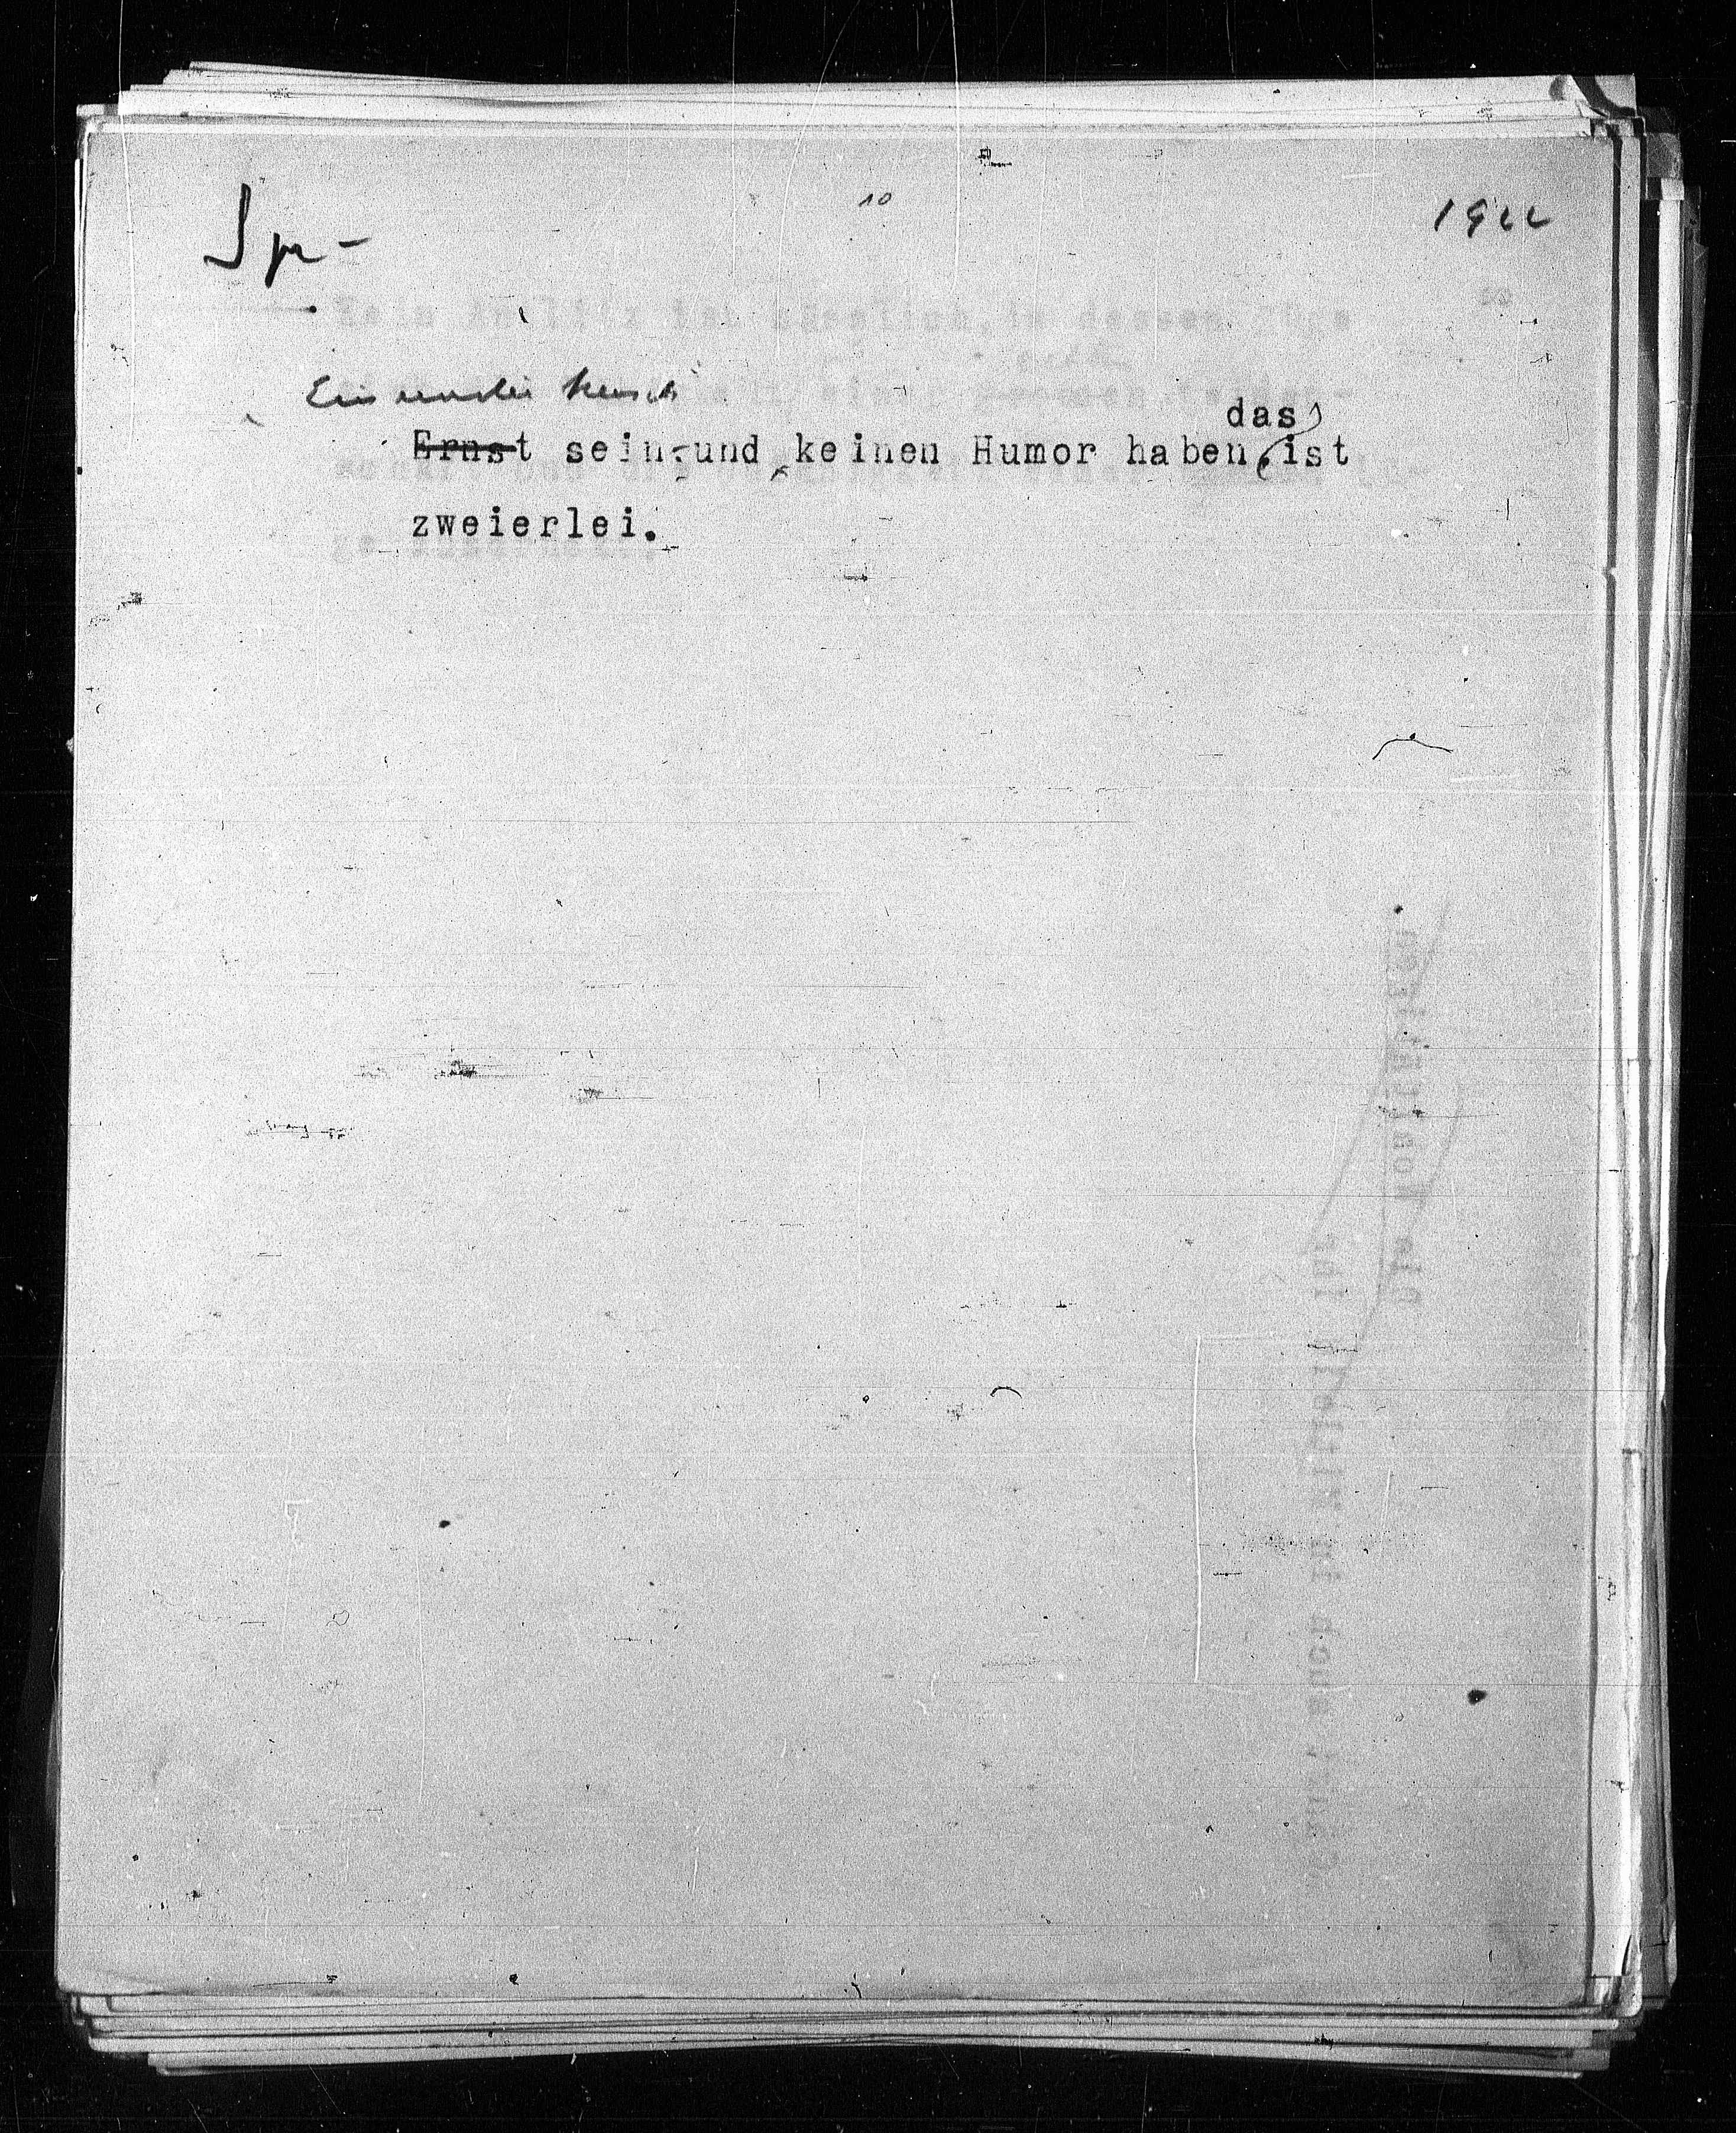 Spr-
10
1922
Ein ernster Mensch
das
Ernst sein und keinen Humor haben, ist
zweierlei.